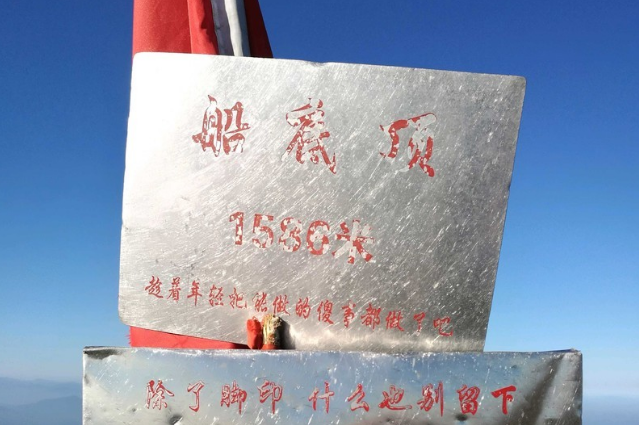 船底顶
1586米
趁着年轻把能做的傻事都做了吧
除了脚印 什么也别留下